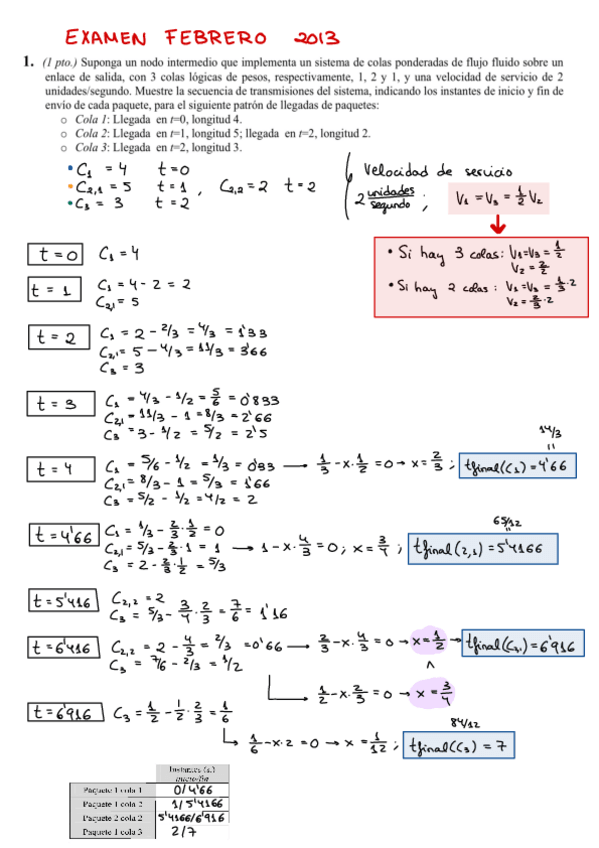 EXAMEN FEBRERO 2013
1. (1 pto.) Suponga un nodo intermedio que implementa un sistema de colas ponderadas de flujo fluido sobre un
enlace de salida, con 3 colas lógicas de pesos, respectivamente, 1, 2 y 1, y una velocidad de servicio de 2
unidades/segundo. Muestre la secuencia de transmisiones del sistema, indicando los instantes de inicio y fin de
envío de cada paquete, para el siguiente patrón de llegadas de paquetes:
o Cola 1: Llegada en t=0, longitud 4.
o Cola 2: Llegada en t=1, longitud 5; llegada en t=2, longitud 2.
o Cola 3: Llegada en t=2, longitud 3.
• C₁ = 4 t = 0
• C₂,₁ = 5 t = 1 , C₂,₂ = 2 t = 2
• C₃ = 3 t = 2
Velocidad de servicio
2 unidades/segundo ;
V₁ = V₃ = 1/2 V₂
• Si hay 3 colas: V₁=V₃= 1/2
V₂ = 2/2
• Si hay 2 colas : V₁=V₃ = 1/3·2
V₂ = 2/3·2
t = 0 C₁ = 4
t = 1 C₁ = 4 - 2 = 2
C₂,₁ = 5
t = 2 C₁ = 2 - 2/3 = 4/3 = 1'33
C₂,₁ = 5 - 4/3 = 11/3 = 3'66
C₃ = 3
t = 3 C₁ = 4/3 - 1/2 = 5/6 = 0'833
C₂,₁ = 11/3 - 1 = 8/3 = 2'66
C₃ = 3 - 1/2 = 5/2 = 2'5
t = 4 C₁ = 5/6 - 1/2 = 1/3 = 0'33 → 1/3 - x·1/2 = 0 → x = 2/3 ; tfinal(C₁) = 4'66
14/3
"
C₂,₁ = 8/3 - 1 = 5/3 = 1'66
C₃ = 5/2 - 1/2 = 4/2 = 2
t = 4'66 C₁ = 1/3 - 2/3·1/2 = 0
C₂,₁ = 5/3 - 2/3·1 = 1 → 1 - x·4/3 = 0 ; x = 3/4 ; tfinal(2,1) = 5'4166
65/12
"
C₃ = 2 - 2/3·1/2 = 5/3
t = 5'416 C₂,₂ = 2
C₃ = 5/3 - 3/4·2/3 = 7/6 = 1'16
t = 6'416 C₂,₂ = 2 - 4/3 = 2/3 = 0'66 → 2/3 - x·4/3 = 0 → x = 1/2 → tfinal(C₂,) = 6'916
C₃ = 7/6 - 2/3 = 1/2
∧
1/2 - x·2/3 = 0 → x = 3/4
t = 6'916 C₃ = 1/2 - 1/2·2/3 = 1/6
84/12
"
1/6 - x·2 = 0 → x = 1/12 ; tfinal(C₃) = 7
Instantes (s.)
inicio/fin
Paquete 1 cola 1 0/4'66
Paquete 1 cola 2 1/5'4166
Paquete 2 cola 2 5'4166/6'916
Paquete 1 cola 3 2/7